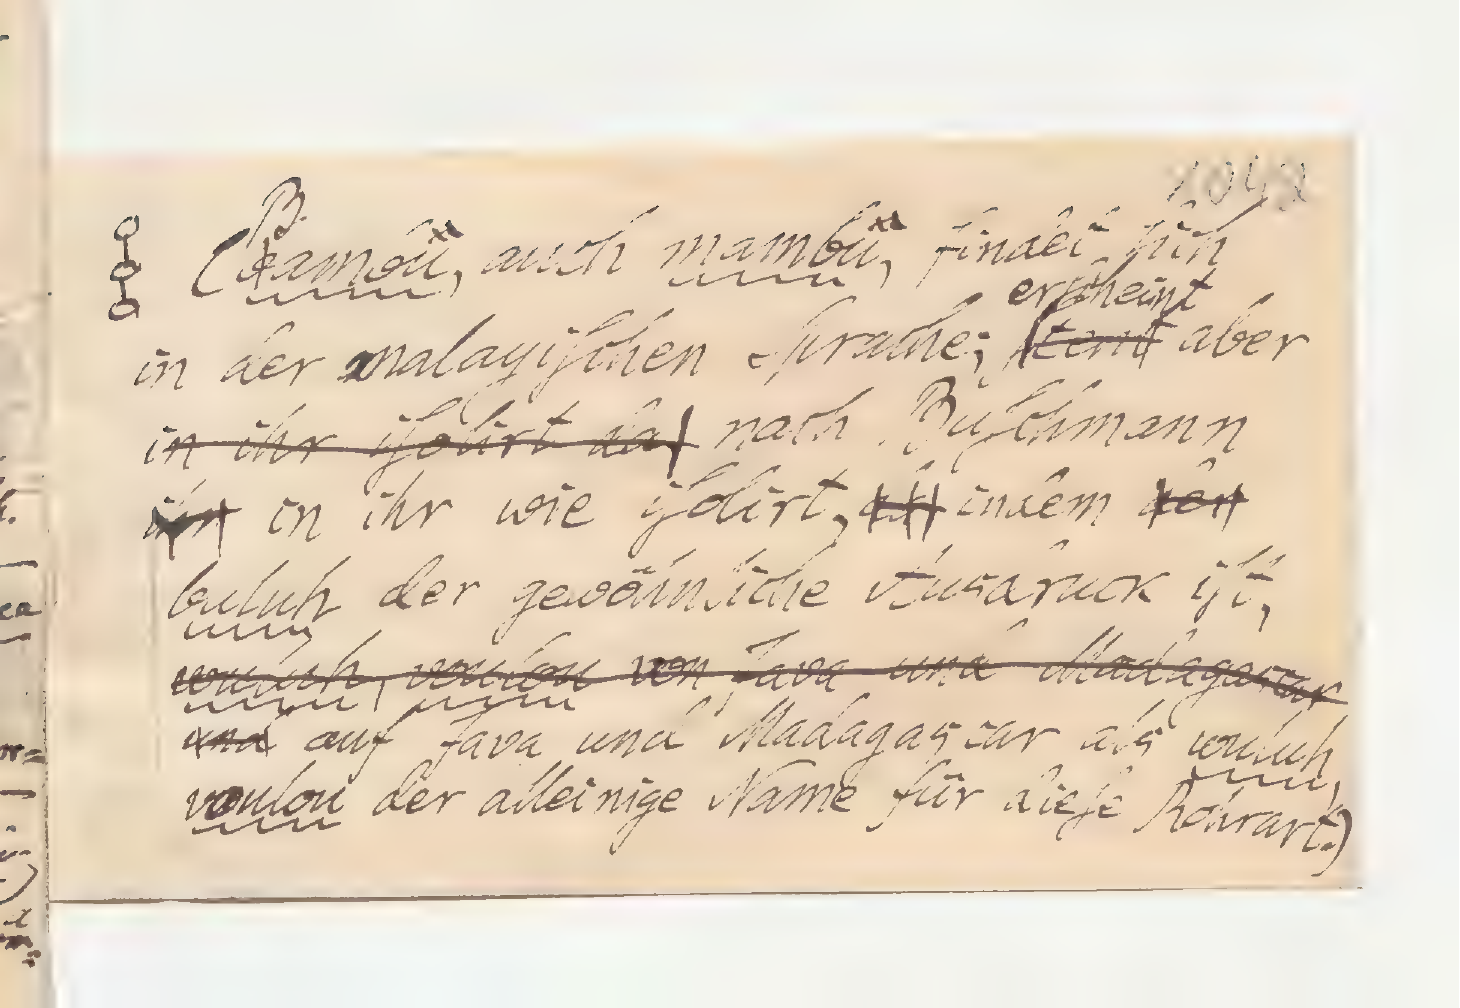 1042
(Bambū, auch mambū, findet sich
erſcheint
in der malayiſchen Sprache; ſteht aber
in ihr iſolirt da nach Buſchmann
in ihr wie iſolirt, indem den
buluh der gewöhnliche Ausdruck iſt,
wuluh, voulou von Java und Madagascar
und auf Java und Madagascar als wuluh,
voulou der alleinige Name für dieſe Rohrart.)